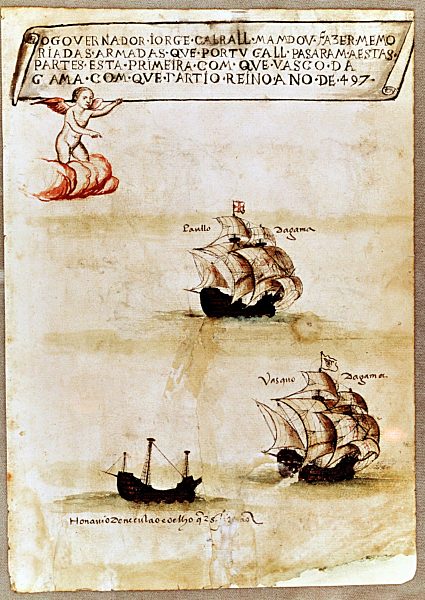 OGOVERNADOR·IORGE·CABRALL·MAMDOV·FAZER MEMO
RIADAS·ARMADAS·QVE·PORTVGALL·PASARAM·AESTAS·
PARTES·ESTA·PRIMEIRA·COM·QVE·VASCO·DA
GAMA·COM·QVE·PARTIO·REINO·ANO·DE·497·
Paullo Dagama
Vasquo Dagama.
Honavio De coelho